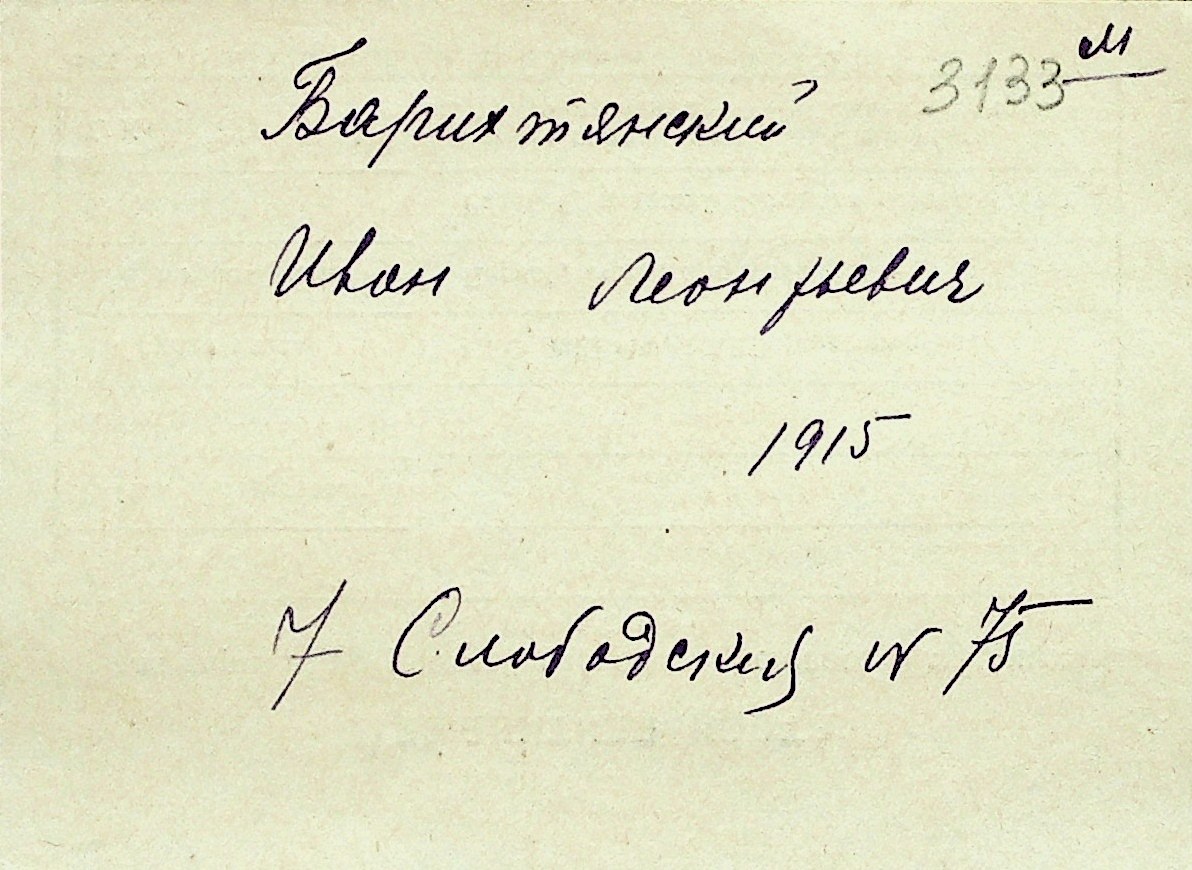 3133 м
Барихтянский
Иван Леонтьевич
1915
7 Слободский № 75